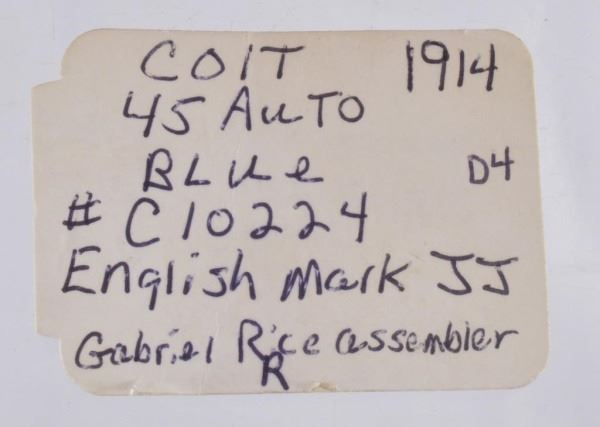 COlT 1914
45 AuTO
BLue D4
# C10224
English Mark JJ
Gabriel Rice assembler
R